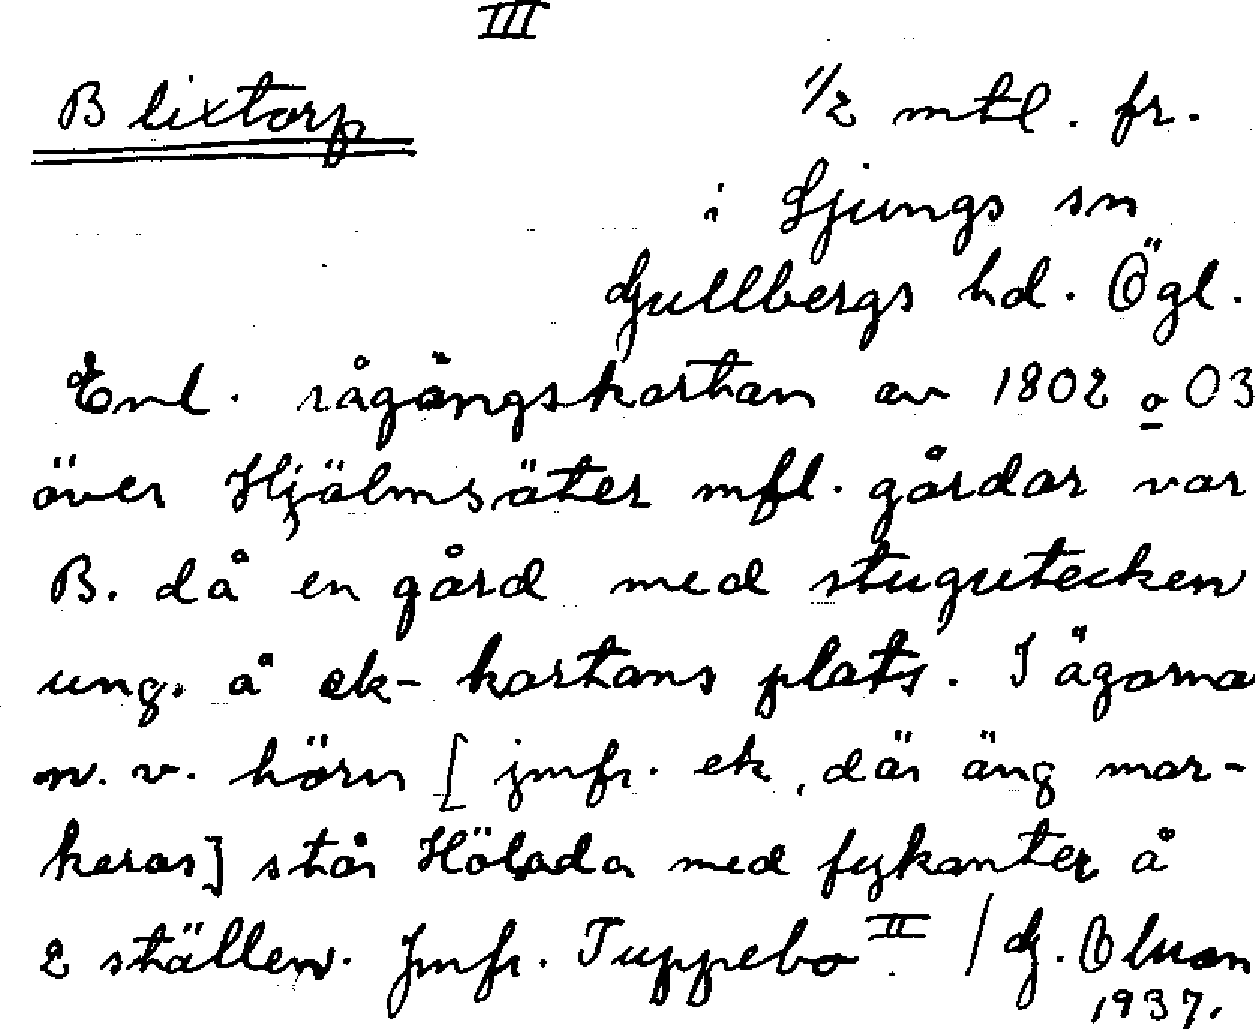 III
Blixtorp 1/2 mtl. fr.
i Ljungs sn
Gullbergs hd. Ögl.
Enl. rågångskartan av 1802 o 03
över Hjälmsäter mfl. gårdar var
B. då en gård med stugutecken
ung. å ek-kartans plats. I ägorna
n. v. hörn [jmfr. ek, där äng mar-
keras] står Hölada med fyrkanter å
2 ställen. Jmfr. Tuppebo II. / G.
1937.